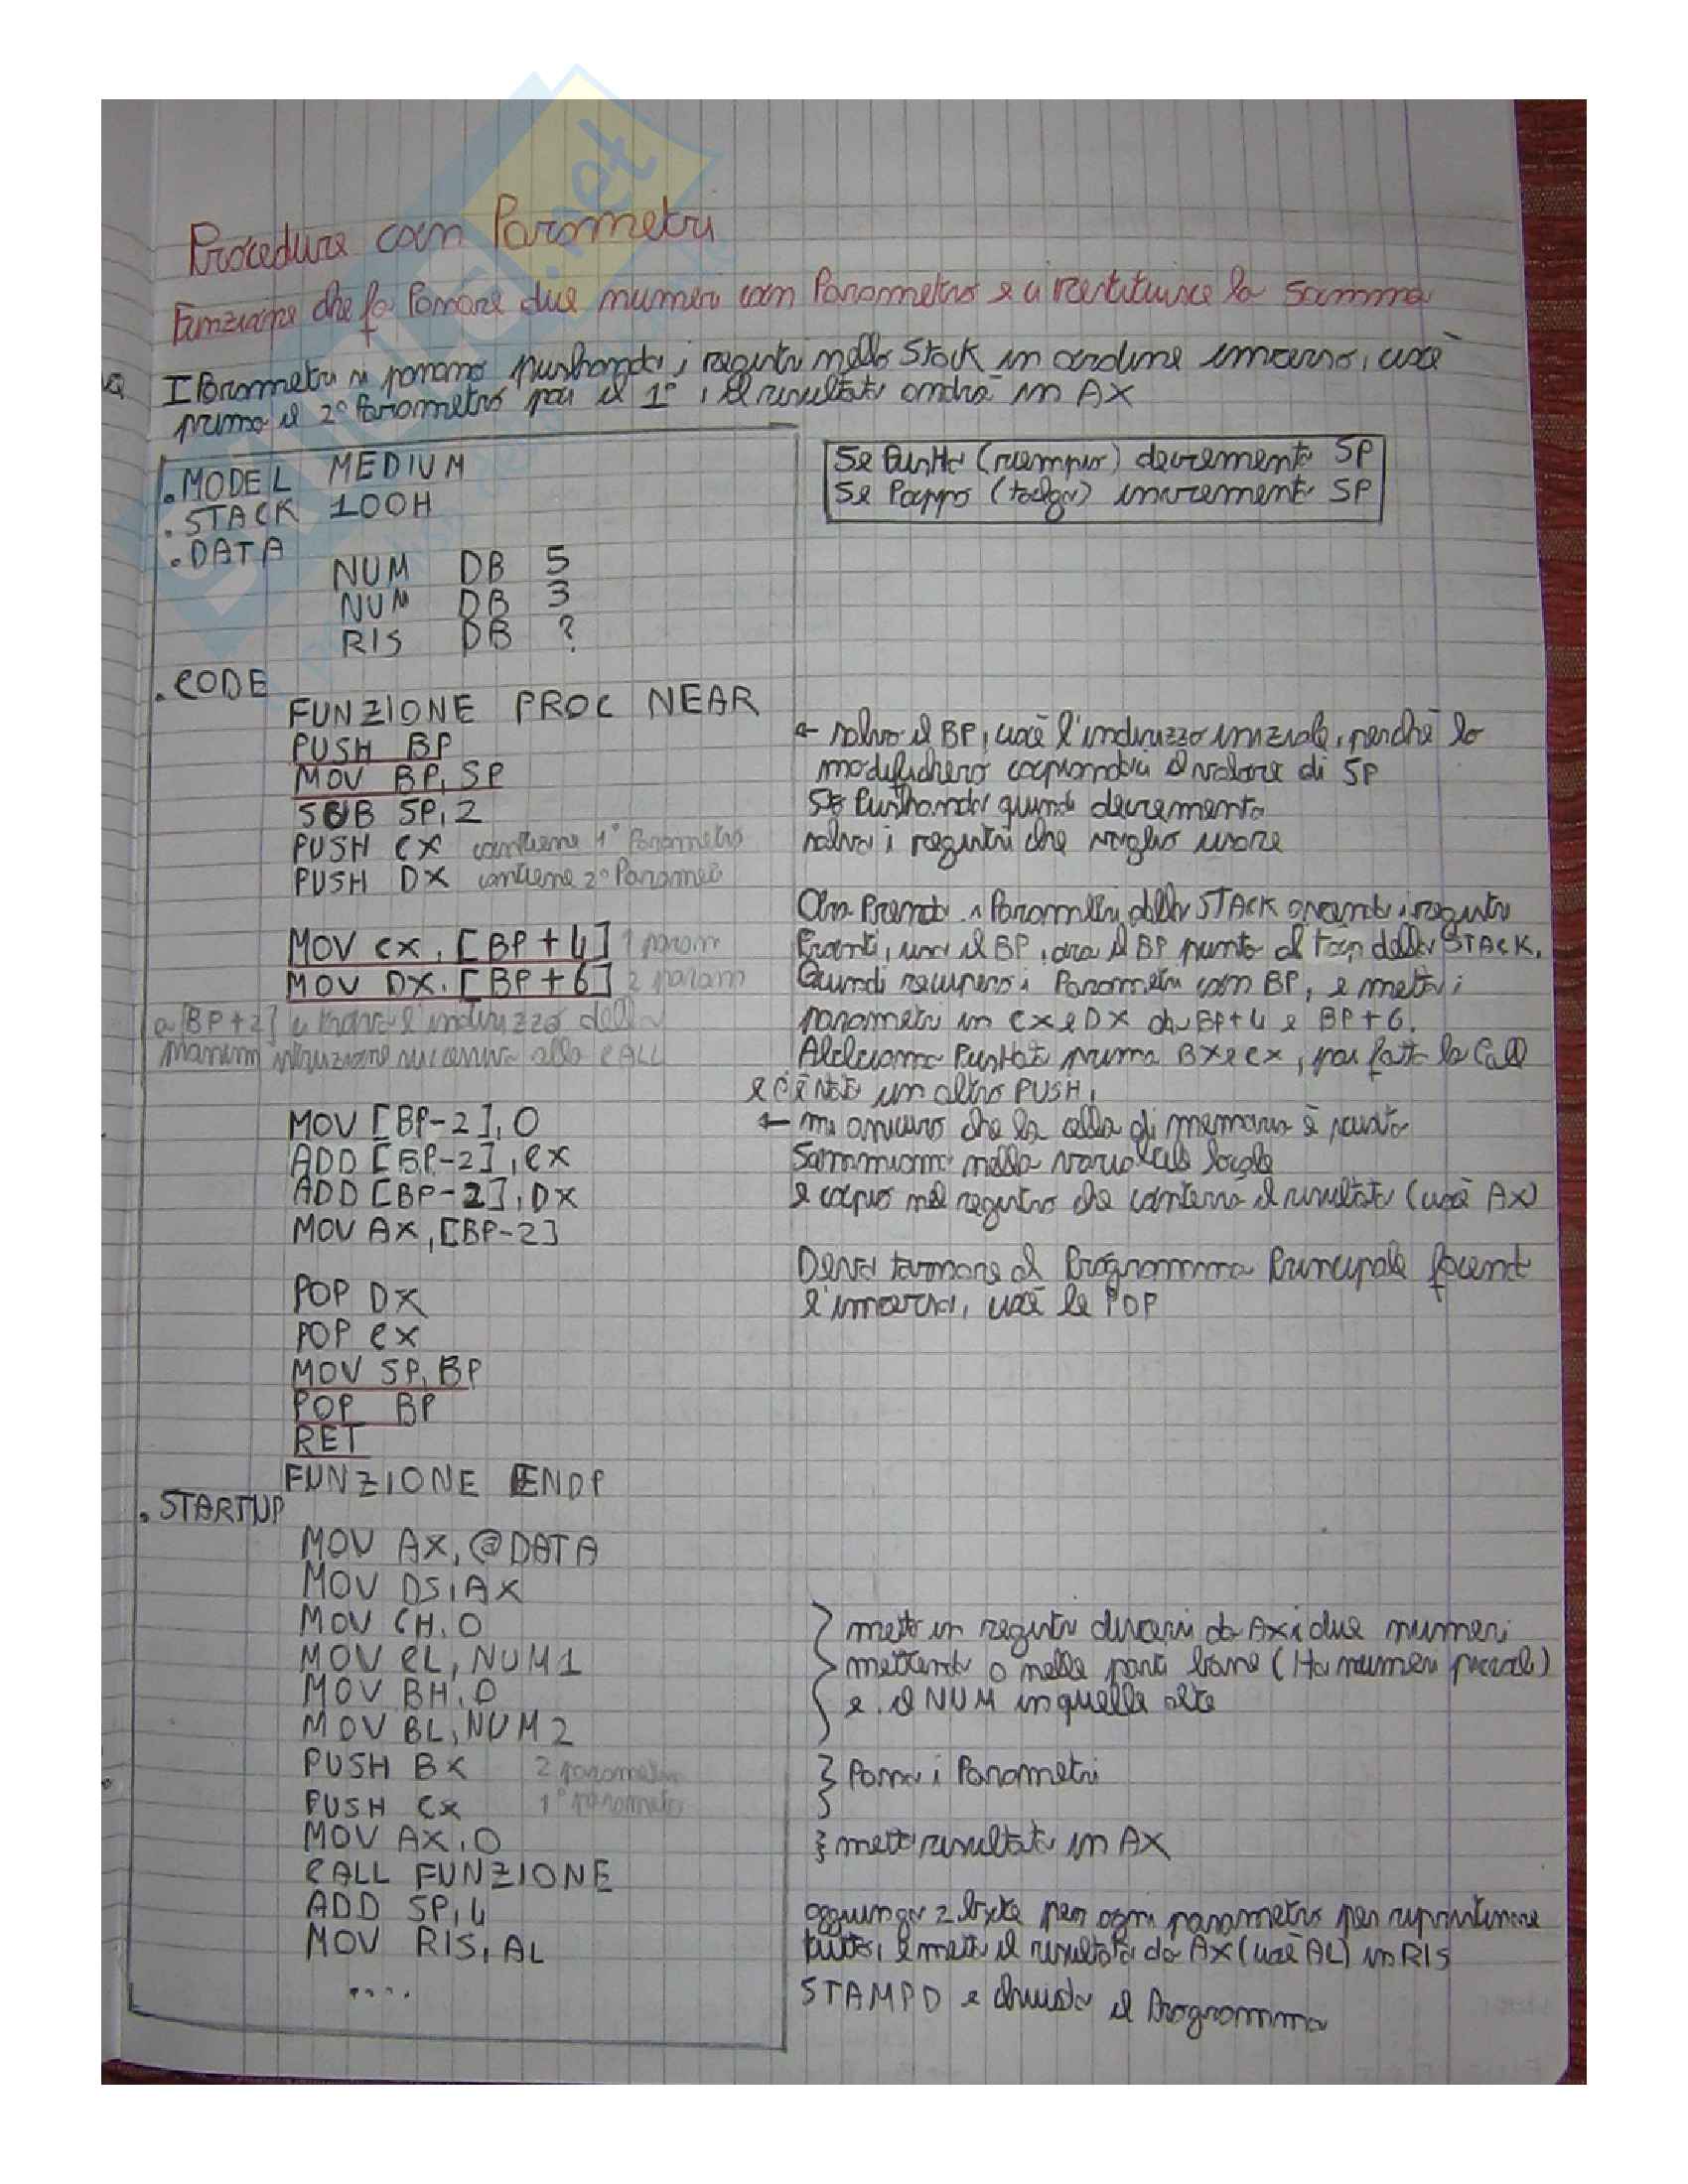 Procedure con Parametri
Funzione che fa Passare due numeri com Parametro e ci restituisce la Somma
I Parametri si passano pushando i registri nello Stack in ordine inverso, cioè
prima il 2° Parametro poi il 1°, il risultato andrà in AX
.MODEL MEDIUM
.STACK 100H
.DATA
NUM DB 5
NUM DB 3
RIS DB ?
Se Pusho (riempio) decremento SP
Se Poppo (tolgo) incremento SP
.CODE
FUNZIONE PROC NEAR
PUSH BP ← salvo il BP, cioè l'indirizzo iniziale, perchè lo
MOV BP, SP modificherò copiandoci il valore di SP
SUB SP, 2 Sto Pushando quindi decremento
PUSH CX contiene 1° Parametro salvo i registri che voglio usare
PUSH DX contiene 2° Paramet
Ora Prendo i Parametri dallo STACK avendo i registri
MOV CX, [BP+4] 1 param Pronti, uso il BP, ora il BP punta al Top dello STACK.
MOV DX, [BP+6] 2 param Quindi recupero i Parametri con BP, e metto i
a [BP+2] si trova l'indirizzo della parametri in CX e DX da BP+4 e BP+6.
istruzione successiva alla CALL Abbiamo Pushato prima BX e CX, poi fatto la Call
e c'è stato un altro PUSH.
MOV [BP-2], 0 ← mi assicuro che la cella di memoria è vuota
ADD [BP-2], CX Sommiamo nella variabile locale
ADD [BP-2], DX e copio nel registro che conterrà il risultato (cioè AX)
MOV AX, [BP-2]
Devo tornare al Programma Principale facendo
POP DX l'inverso, cioè le POP
POP CX
MOV SP, BP
POP BP
RET
FUNZIONE ENDP
.STARTUP
MOV AX, @DATA
MOV DS, AX
MOV CH, 0 metto in registri diversi da AX i due numeri
MOV CL, NUM1 mettendo 0 nelle parti basse (Ho numeri piccoli)
MOV BH, 0 e il NUM in quelle alte
MOV BL, NUM2
PUSH BX 2 parametro Passo i Parametri
PUSH CX 1° parametro
MOV AX, 0 metto risultato in AX
CALL FUNZIONE
ADD SP, 4 aggiungo 2 byte per ogni parametro per ripristinare
MOV RIS, AL tutto, e metto il risultato da AX (cioè AL) in RIS
.... STAMPO e chiudo il Programma